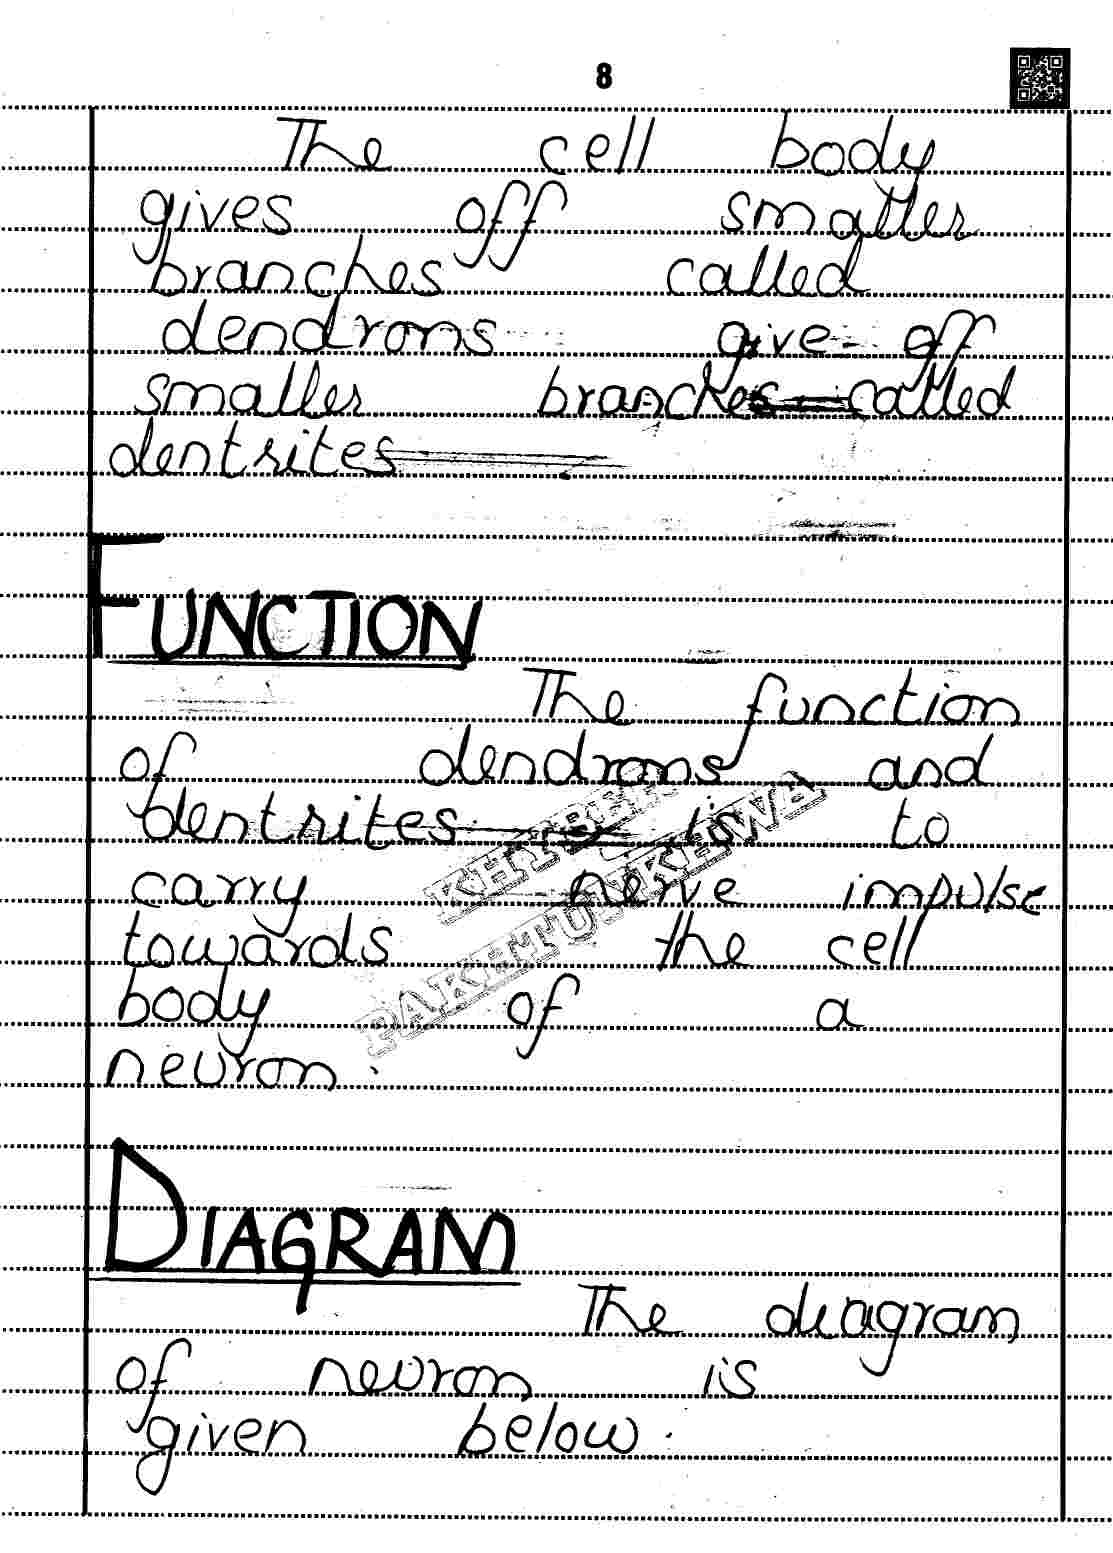 8
The cell body
gives off smaller
branches called
dendrons give off
smaller branches called
dentrites
FUNCTION
The function
of dendrons and
dentrites is to
carry nerve impulse
towards the cell
body of a
neuron.
KHYBER
PAKHTUNKHWA
DIAGRAM
The diagram
of neuron is
given below.